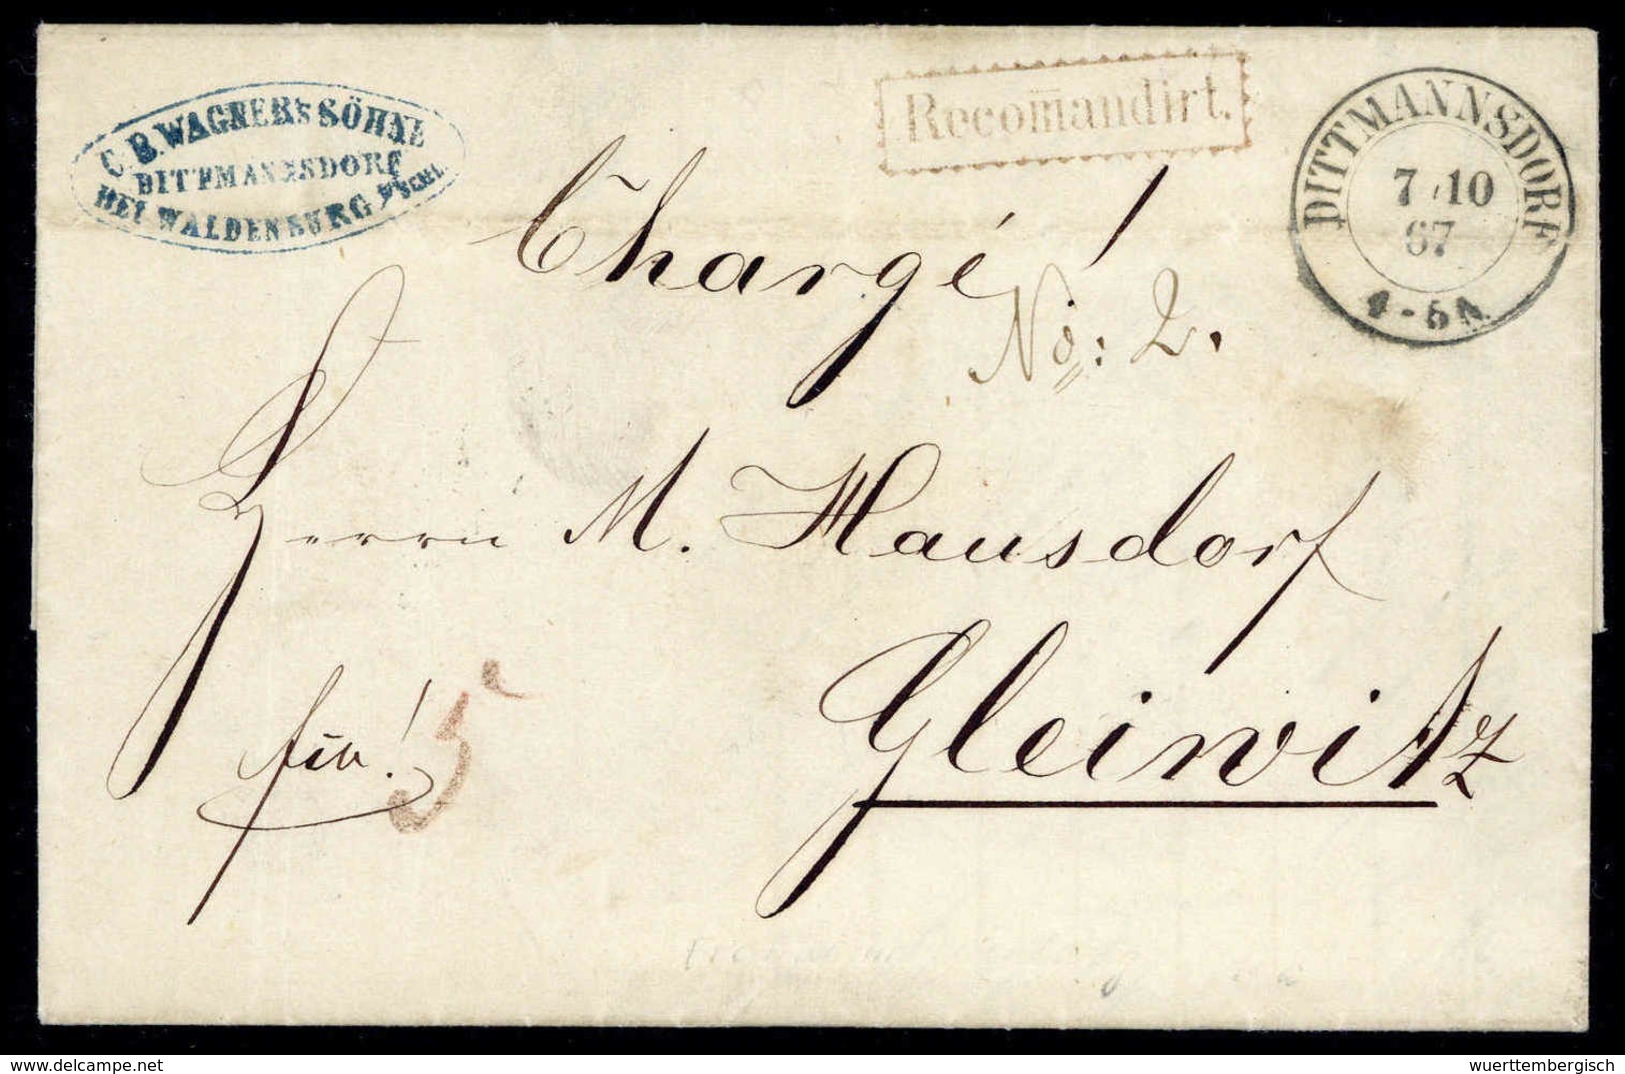 C. B. WAGNER'S SÖHNE
DITTMANNSDORF
BEI WALDENBURG
Recom̄andirt.
DITTMANNSDORF
7 10
67
4-5 N
Chargé!
No: 2.
Herrn M. Hausdorf
Gleiwitz
5
delcampe.net
wuerttembergisch